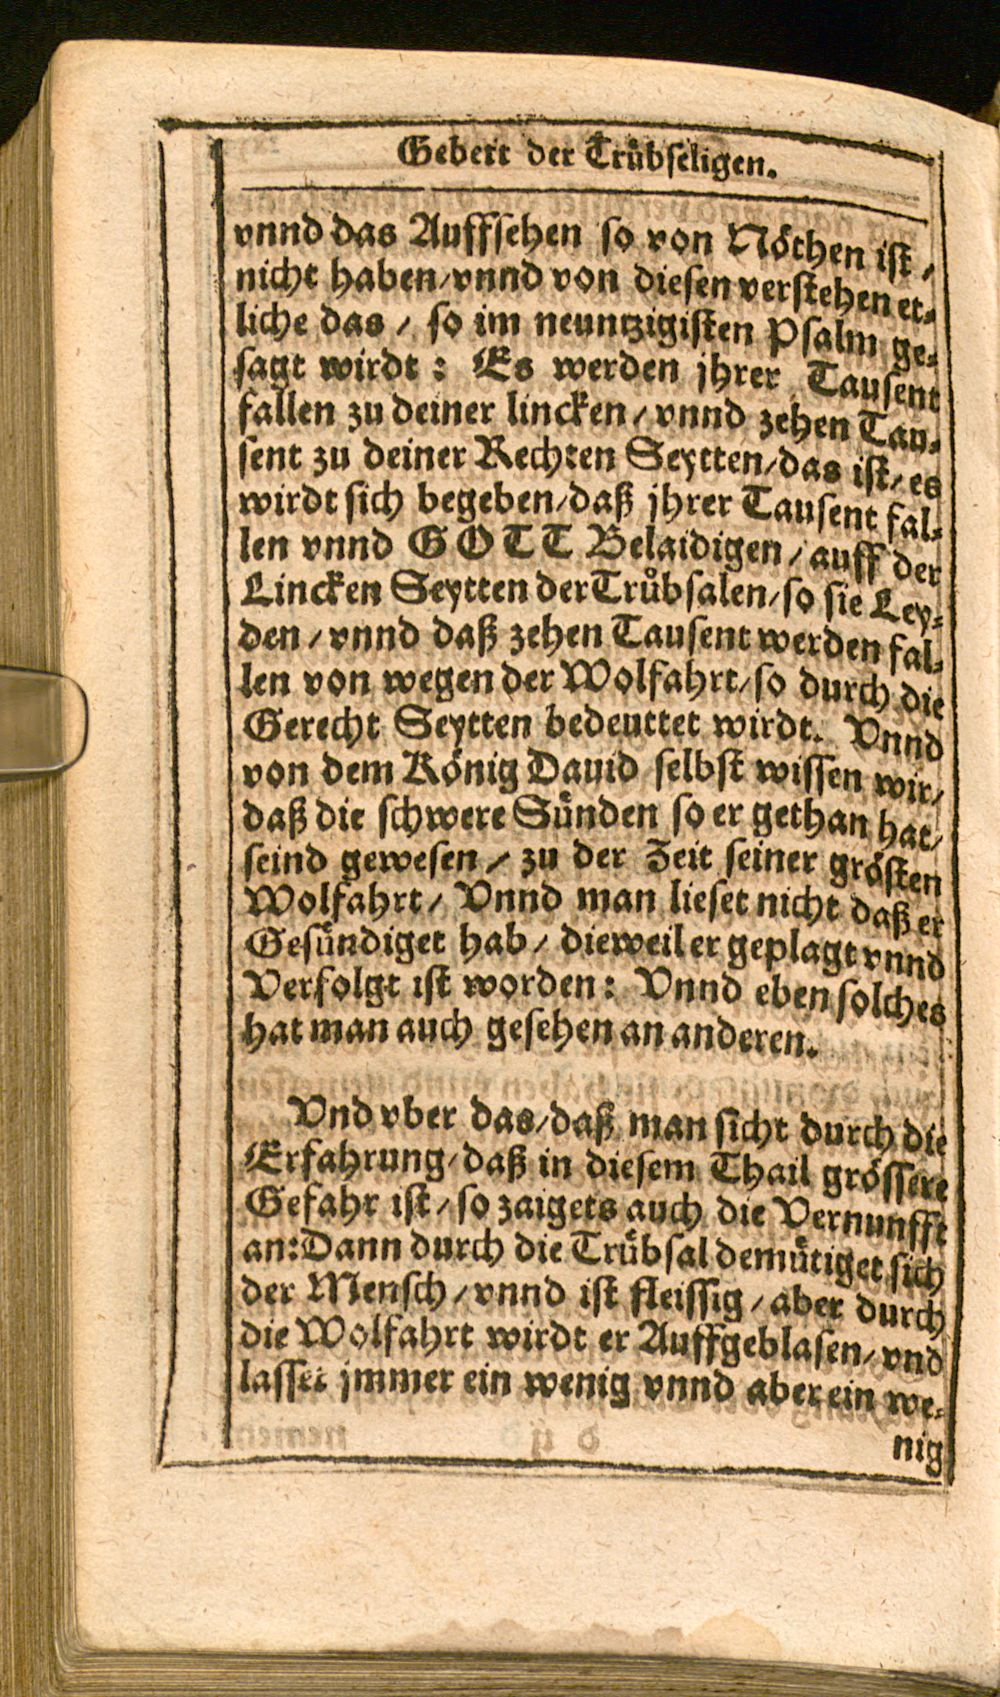 Gebett der Trübseligen.
vnnd das Auffsehen so von Nöthen ist /
nicht haben / vnnd von diesen verstehen et-
liche das / so im neuntzigisten Psalm ge-
sagt wirdt : Es werden jhrer Tausent
fallen zu deiner lincken / vnnd zehen Tau-
sent zu deiner Rechten Seytten / das ist / es
wirdt sich begeben / daß jhrer Tausent fal-
len vnnd GOTT Belaidigen / auff der
Lincken Seytten der Trůbsalen / so sie Ley-
den / vnnd daß zehen Tausent werden fal-
len von wegen der Wolfahrt / so durch die
Gerecht Seytten bedeuttet wirdt. Vnnd
von dem König Dauid selbst wissen wir /
daß die schwere Sünden so er gethan hat /
seind gewesen / zu der Zeit seiner grösten
Wolfahrt / Vnnd man lieset nicht daß er
Gesündiget hab / dieweil er geplagt vnnd
Verfolgt ist worden : Vnnd eben solches
hat man auch gesehen an anderen.
Vnd vber das / daß man sicht durch die
Erfahrung / daß in diesem Thail grössere
Gefahr ist / so zaigets auch die Vernunfft
an: Dann durch die Trübsal demütiget sich
der Mensch / vnnd ist fleissig / aber durch
die Wolfahrt wirdt er Auffgeblasen / vnd
lasset jmmer ein wenig vnnd aber ein we-
nig